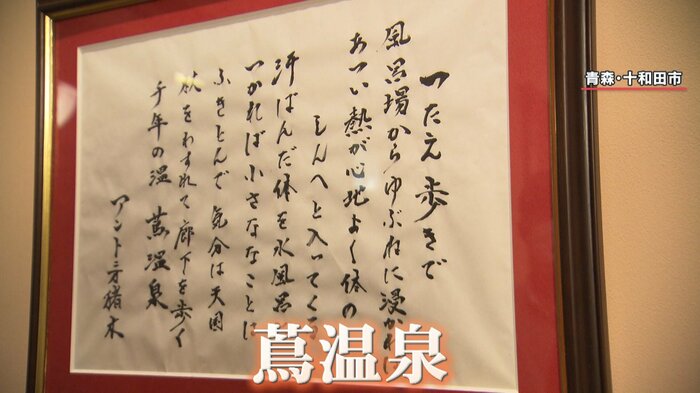 青森・十和田市
つたえ歩きで
風呂場からゆぶねに浸かれば
あつい熱が心地よく体の
しんへと入ってくる
汗ばんだ体を水風呂
つかれば小さななことは
ふきとんで 気分は天国
欲をわすれて廊下を歩く
千年の湯 蔦温泉
アントニオ猪木
蔦温泉